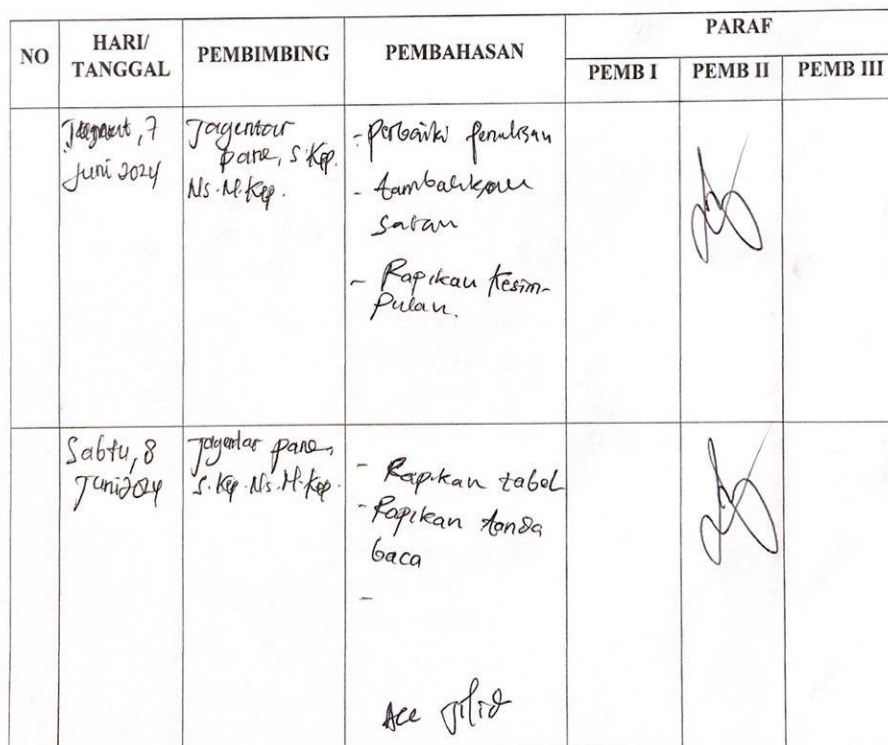 NO HARI/ TANGGAL PEMBIMBING PEMBAHASAN PARAF
PEMB I PEMB II PEMB III
, 7
Juni 2024
Jagentar
pane, S.Kep.
Ns.M.Kep.
- perbaiki penulisan
- tambahkan
saran
- Rapikan kesim-
pulan.
Sabtu, 8
Juni 2024
Jagentar pane,
S.Kep.Ns.M.Kep.
- Rapikan tabel
- Rapikan tanda
baca
-
Acc jilid